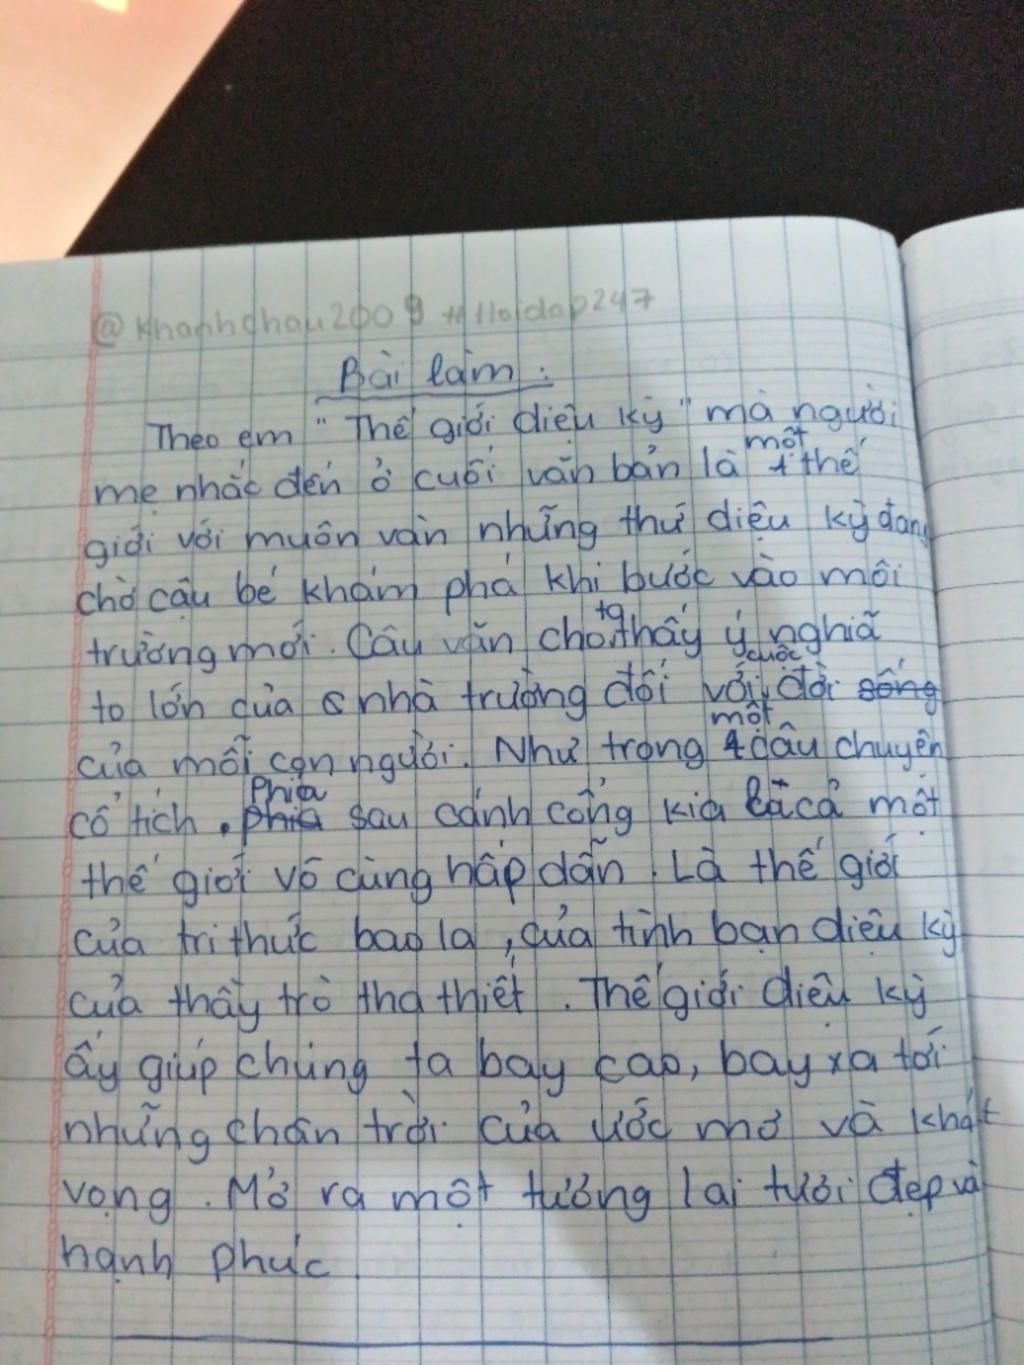 @Khanhchau2009 #Hoidap247
Bài làm:
Theo em "Thế giới diệu kỳ" mà người
mẹ nhắc đến ở cuối văn bản là một thế
giới với muôn vàn những thứ diệu kỳ đang
chờ cậu bé khám phá khi bước vào môi
trường mới. Câu văn cho ta thấy ý nghĩa
to lớn của nhà trường đối với cuộc đời sống
của mỗi con người. Như trong một câu chuyện
cổ tích. Phía phía sau cánh cổng kia là cả một
thế giới vô cùng hấp dẫn. Là thế giới
của tri thức bao la, của tình bạn diệu kỳ
của thầy trò tha thiết. Thế giới diệu kỳ
ấy giúp chúng ta bay cao, bay xa tới
những chân trời của ước mơ và khát
vọng. Mở ra một tương lai tươi đẹp và
hạnh phúc.